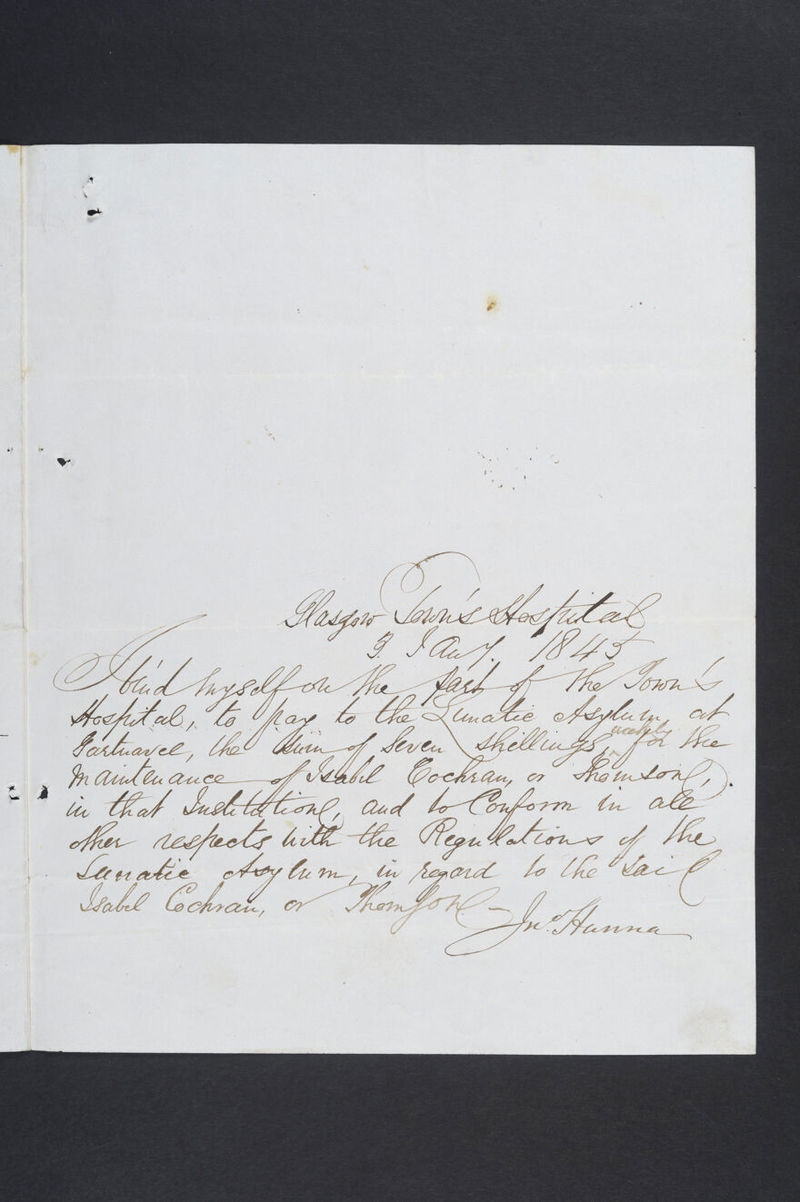 Glasgow Town's Hospital
3 Jany. 1845
I bind myself on the part of the Town's
Hospital, to pay to the Lunatic Asylum at
Gartnavel, the sum of Seven Shillings weekly for the
Maintenance of Isabel Cochran, or Thomson,
in that Institution, and to Conform in all
other respects with the Regulations of the
Lunatic Asylum, in regard to the said
Isabel Cochran, or Thomson –
Jno. Hanna